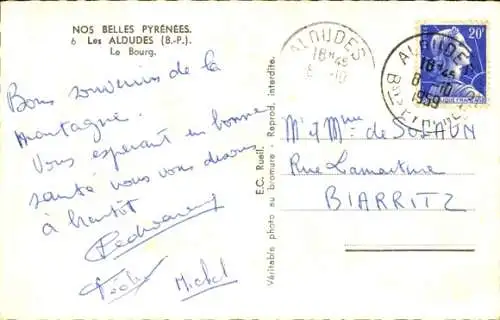 NOS BELLES PYRÉNÉES.
6 Les ALDUDES (B.-P.).
Le Bourg.
Bons souvenirs de la
montagne.
Vous espérant en bonne
santé nous vous disons
à bientôt
Michel
E.C. Rueil.
Véritable photo au bromure - Reprod. interdite.
ALDUDES
18H45
8-10
ALDUDES
18H45
8-10
1959
20F
FRANÇAISE
Mr et Mme de
Rue Lamartine
BIARRITZ